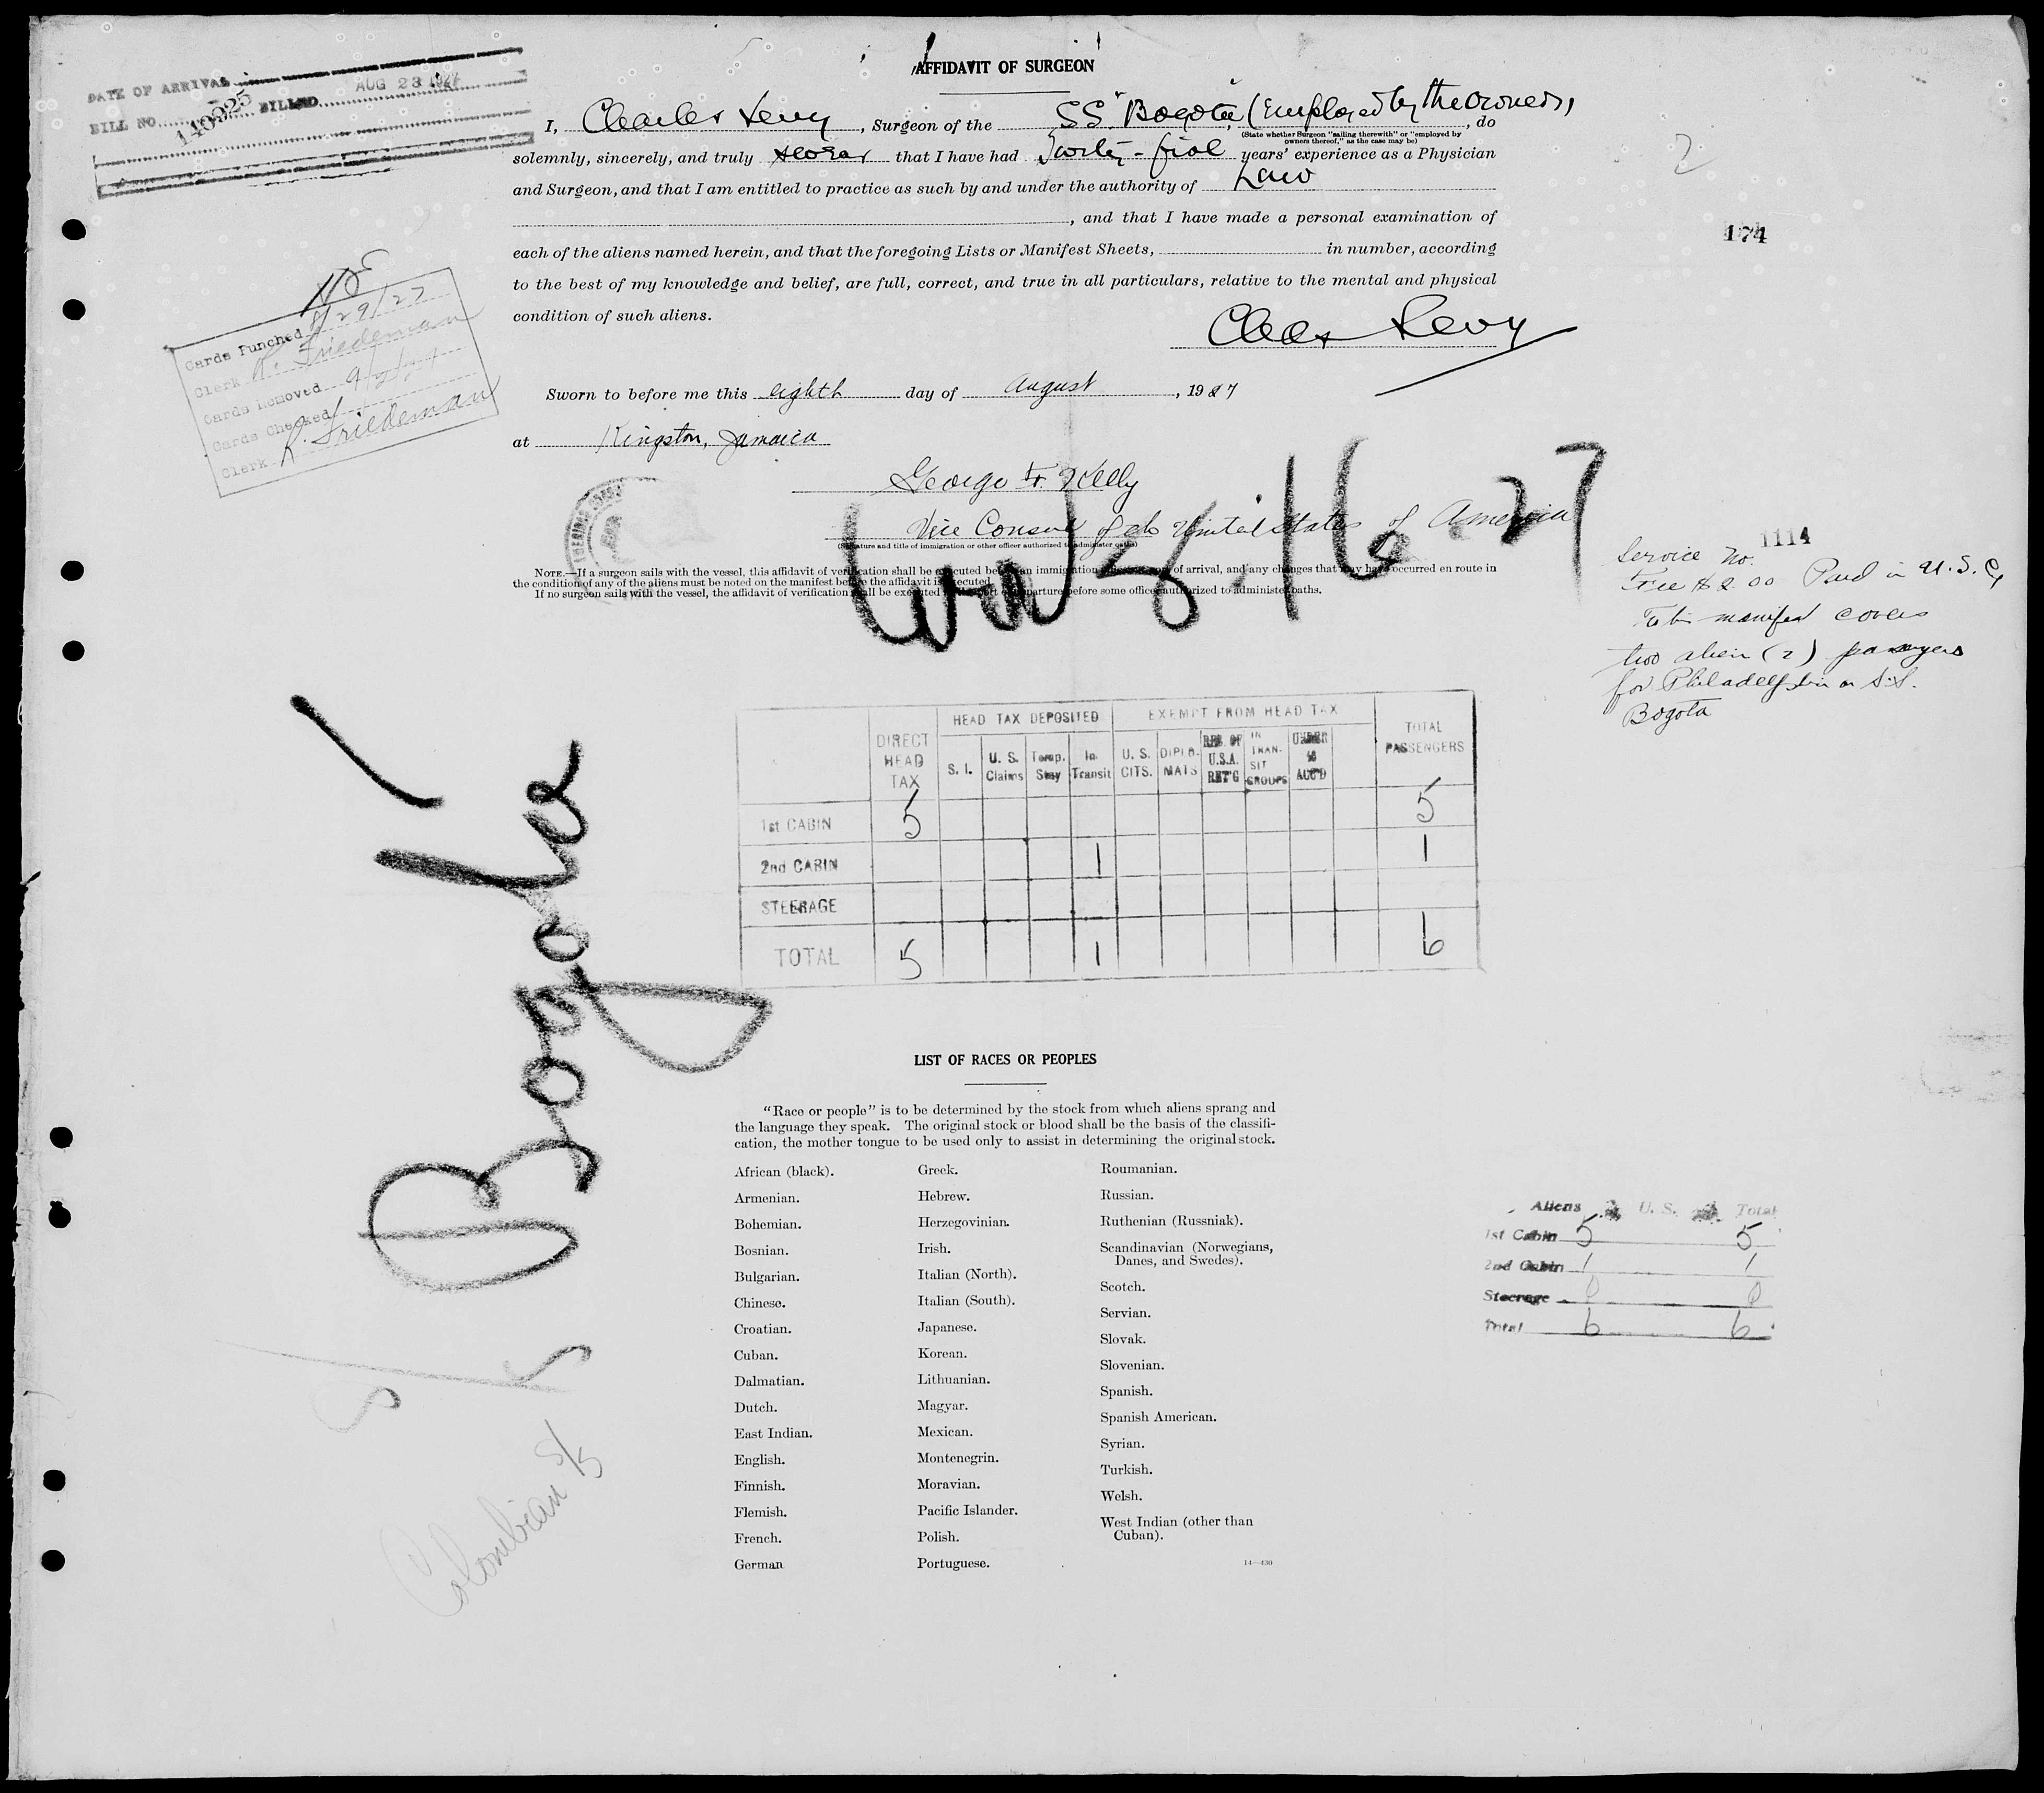 AFFIDAVIT OF SURGEON
DATE OF ARRIVAL AUG 23 1927
BILL NO. 140825 BILLED
I, Charles Levy, Surgeon of the SS "Bogota", (Employed by the owners), do
(State whether Surgeon "sailing therewith" or "employed by
owners thereof," as the case may be)
solemnly, sincerely, and truly swear that I have had years' experience as a Physician
and Surgeon, and that I am entitled to practice as such by and under the authority of Law
, and that I have made a personal examination of
each of the aliens named herein, and that the foregoing Lists or Manifest Sheets, in number, according
to the best of my knowledge and belief, are full, correct, and true in all particulars, relative to the mental and physical
condition of such aliens.
Chas Levy
Sworn to before me this eighth day of August, 1927
at Kingston, Jamaica
George F. Kelly
Vice Consul of the United States of America
(Signature and title of immigration or other officer authorized to administer oaths)
NOTE.—If a surgeon sails with the vessel, this affidavit of verification shall be executed before an immigration of arrival, and any changes that may have occurred en route in
the condition of any of the aliens must be noted on the manifest before the affidavit is executed.
If no surgeon sails with the vessel, the affidavit of verification shall be executed departure before some officer authorized to administer oaths.
2
174
Cards Punched 8/29/27
Clerk R. Friedeman
Cards Removed 9/2/27
Cards Checked
Clerk R. Friedeman
8.16.27
Service No. 1114
Fee $2.00 Paid in U.S.C.
This manifest covers
two alien (2) passengers
for Philadelphia on S.S.
Bogota
S/S Bogota
Colombian S/S
HEAD TAX DEPOSITED EXEMPT FROM HEAD TAX
DIRECT HEAD TAX S. I. U. S. Claims Temp. Stay In Transit U. S. CITS. DIPLO-MATS RES. OF U.S.A. RET'G IN TRAN-SIT GROUPS UNDER 16 ACC'D TOTAL PASSENGERS
1st CABIN 5 5
2nd CABIN 1 1
STEERAGE
TOTAL 5 1 6
LIST OF RACES OR PEOPLES
"Race or people" is to be determined by the stock from which aliens sprang and
the language they speak. The original stock or blood shall be the basis of the classifi-
cation, the mother tongue to be used only to assist in determining the original stock.
African (black).
Armenian.
Bohemian.
Bosnian.
Bulgarian.
Chinese.
Croatian.
Cuban.
Dalmatian.
Dutch.
East Indian.
English.
Finnish.
Flemish.
French.
German
Greek.
Hebrew.
Herzegovinian.
Irish.
Italian (North).
Italian (South).
Japanese.
Korean.
Lithuanian.
Magyar.
Mexican.
Montenegrin.
Moravian.
Pacific Islander.
Polish.
Portuguese.
Roumanian.
Russian.
Ruthenian (Russniak).
Scandinavian (Norwegians,
Danes, and Swedes).
Scotch.
Servian.
Slovak.
Slovenian.
Spanish.
Spanish American.
Syrian.
Turkish.
Welsh.
West Indian (other than
Cuban).
14—430
Aliens U. S. Total
1st Cabin 5 5
2nd Cabin 1 1
Steerage 0 0
Total 6 6